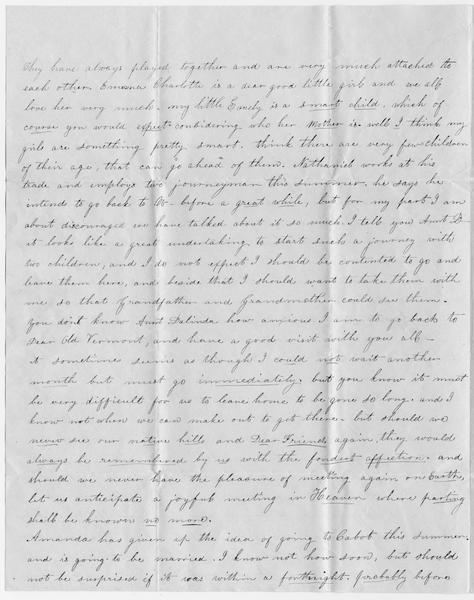 They have always played together and are very much attached to
each other. Emerna Charlotte is a dear good little girl and we all
love her very much - my little Emely is a smart child, which of
course you would expect considering who her Mother is - well I think my
girls are something pretty smart. think there are very few children
of their age, that can "go ahead" of them. Nathaniel works at his
trade and employs two journeyman this summer. he says he
intends to go back to before a great while, but for my part I am
about discouraged we have talked about it so much. I tell you Aunt D-
it looks like a great undertaking to start such a journey with
two children, and I do not expect I should be contented to go and
leave them here, and beside that I should want to take them with
me so that Grandfather and Grandmother could see them.
You don't know Aunt Dalinda how anxious I am to go back to
Dear Old Vermont, and have a good visit with you all -
it sometimes seems as though I could not wait another
month but must go immediately. but you know it must
be very difficult for us to leave home to be gone so long. and I
know not when we can make out to get there - but should we
never see our native hills and Dear Friends again, they would
always be remembered by us with the fondest affection. and
should we never have the pleasure of meeting again on Earth,
let us anticipate a joyful meeting in Heaven where parting
shall be known no more.
Amanda has given up the idea of going to Cabot this summer.
and is going to be married. I know not how soon, but should
not be surprised if it was within a fortnight. probably before